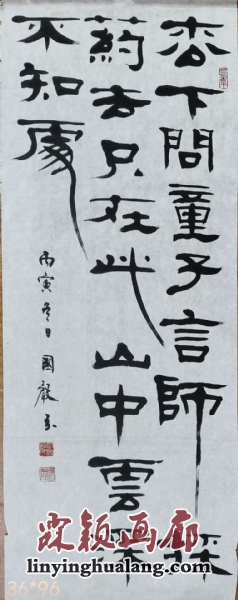 枩下問童子言師採
葯去只在此山中雲深
不知處
丙寅冬日國嚴书
霖颖画廊
linyinghualang.com
36*96